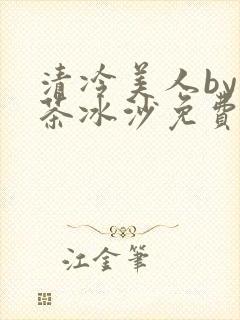 清冷美人by
茶冰沙免費
江金筆